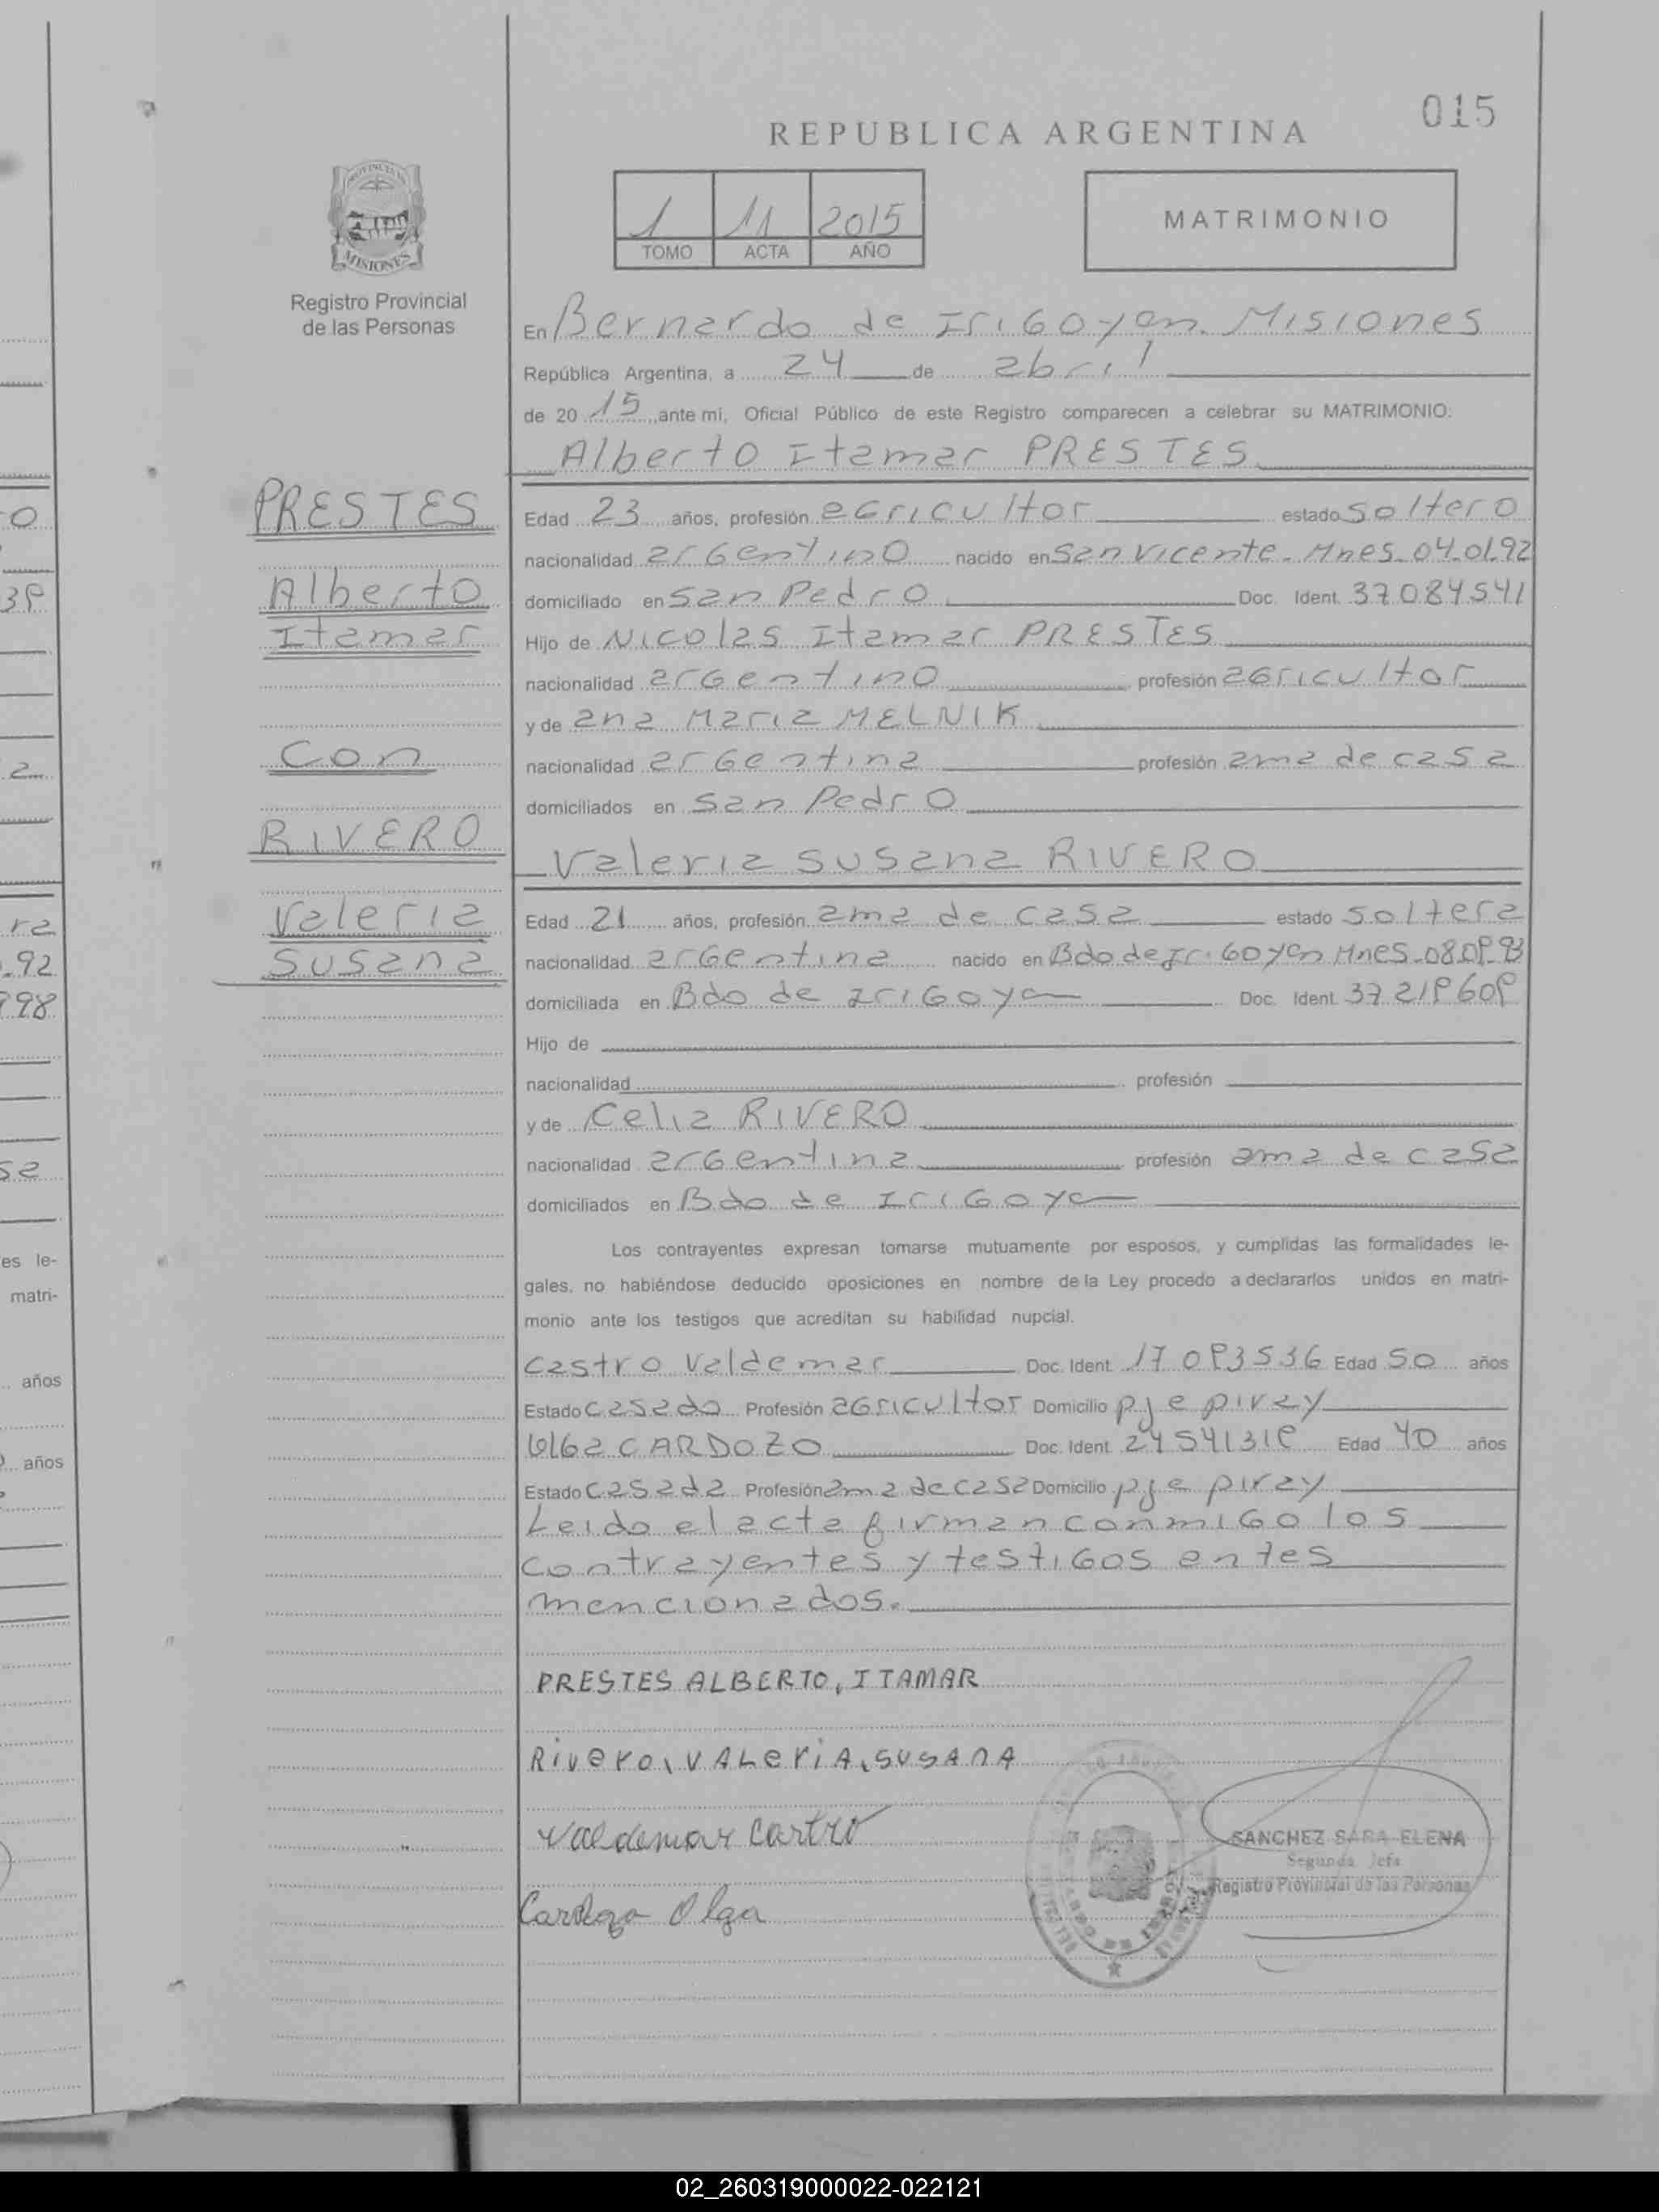 015
REPUBLICA ARGENTINA
1 11 2015
TOMO ACTA AÑO
MATRIMONIO
PROVINCIA DE
MISIONES
Registro Provincial
de las Personas
En Bernardo de Irigoyen. Misiones
República Argentina, a 24 de abril
de 20 15 ante mi, Oficial Público de este Registro comparecen a celebrar su MATRIMONIO:
Alberto Itamar PRESTES
PRESTES
Alberto
Itamar
con
RIVERO
Valeria
Susana
Edad 23 años, profesión agricultor estado soltero
nacionalidad argentino nacido en San Vicente - Mnes - 04.01.92
domiciliado en San Pedro Doc. Ident. 37084541
Hijo de Nicolas Itamar PRESTES
nacionalidad argentino profesión agricultor
y de ana Maria MELNIK
nacionalidad argentina profesión ama de casa
domiciliados en San Pedro
Valeria Susana RIVERO
Edad 21 años, profesión ama de casa estado soltera
nacionalidad argentina nacido en Bdo de Irigoyen Mnes - 08.09.93
domiciliada en Bdo de Irigoyen Doc. Ident. 37219609
Hijo de
nacionalidad profesión
y de Celia RIVERO
nacionalidad argentina profesión ama de casa
domiciliados en Bdo de Irigoyen
Los contrayentes expresan tomarse mutuamente por esposos, y cumplidas las formalidades le-
gales, no habiéndose deducido oposiciones en nombre de la Ley procedo a declararlos unidos en matri-
monio ante los testigos que acreditan su habilidad nupcial.
Castro Valdemar Doc. Ident. 17093536 Edad 50 años
Estado casado Profesión agricultor Domicilio pje piray
Olga CARDOZO Doc. Ident. 24541319 Edad 40 años
Estado casada Profesión ama de casa Domicilio pje piray
Leido el acta firman conmigo los
contrayentes y testigos antes
mencionados.
PRESTES ALBERTO, ITAMAR
Rivero, VALeriA, SUSANA
Valdemar Castro
Cardozo Olga
SANCHEZ SARA ELENA
Segunda Jefa
Registro Provincial de las Personas
02_260319000022-022121